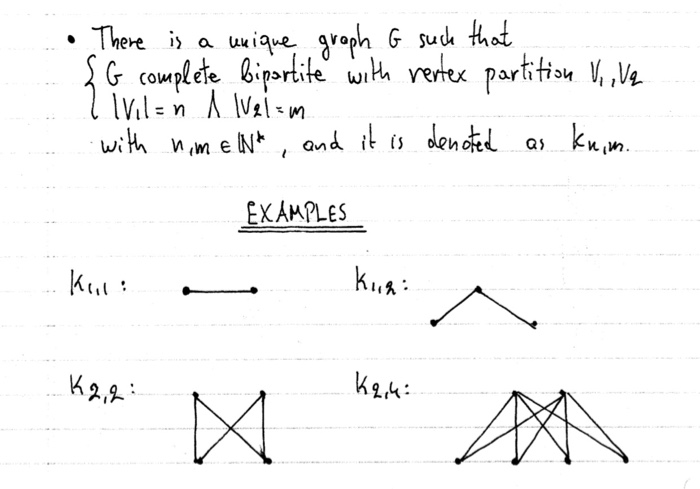 • There is a unique graph G such that
{ G complete bipartite with vertex partition V₁, V₂
|V₁| = n ∧ |V₂| = m
with n,m ∈ ℕ*, and it is denoted as Kn,m.
EXAMPLES
K1,1: K1,2:
K2,2: K2,4: